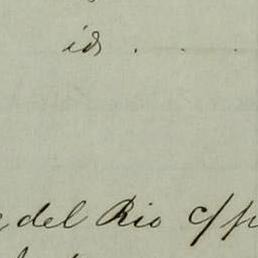 id . . .
del Rio c/p